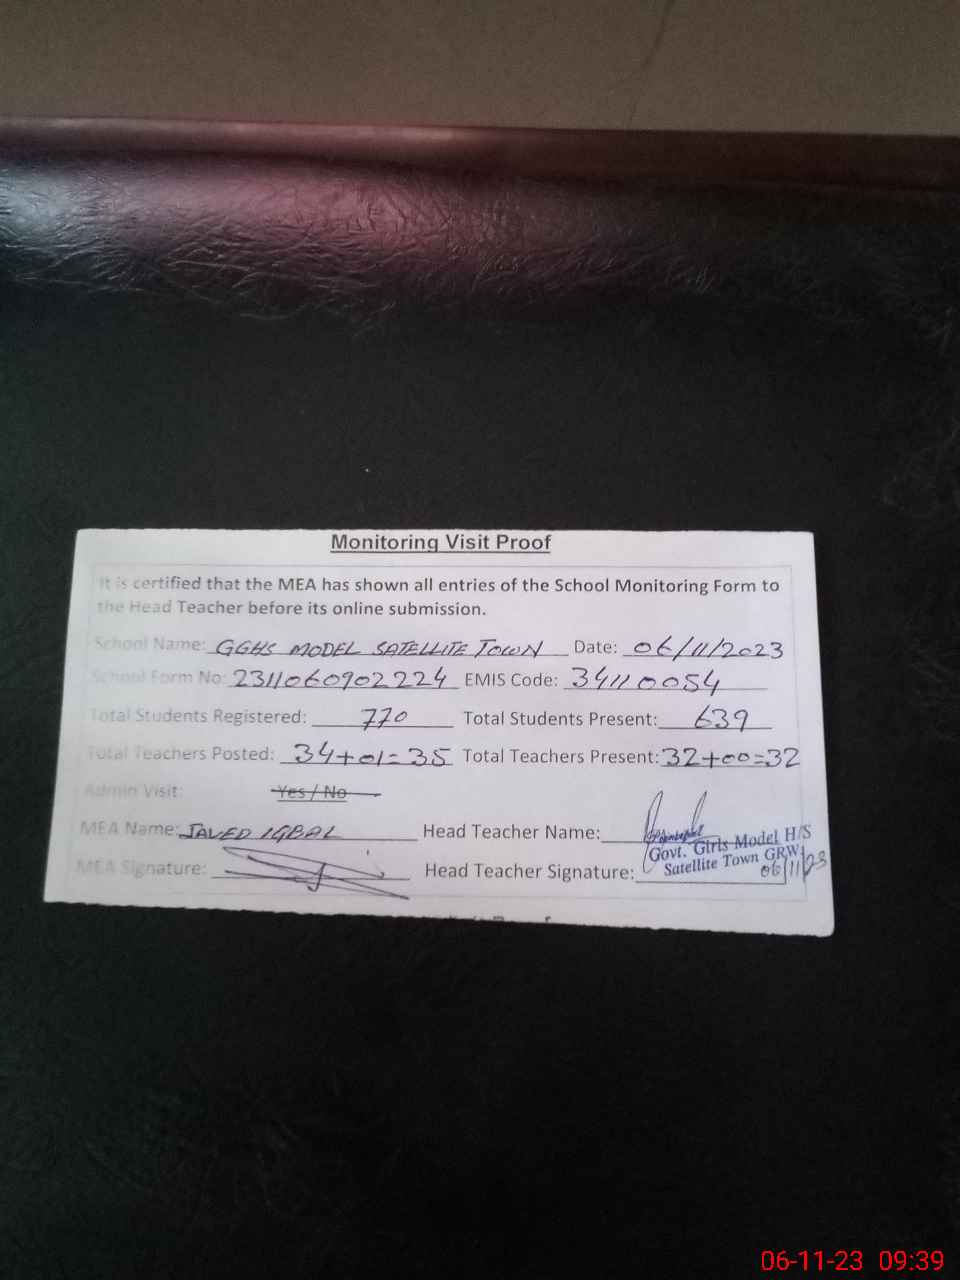 Monitoring Visit Proof
It is certified that the MEA has shown all entries of the School Monitoring Form to
the Head Teacher before its online submission.
School Name: GGHS MODEL SATELLITE TOWN Date: 06/11/2023
School Form No: 2311060902224 EMIS Code: 34110054
Total Students Registered: 770 Total Students Present: 639
Total Teachers Posted: 34+01=35 Total Teachers Present: 32+00=32
Admin Visit: Yes / No
MEA Name: JAVED IQBAL Head Teacher Name:
MEA Signature: Head Teacher Signature:
Govt. Girls Model H/S
Satellite Town GRW
06/11/23
06-11-23 09:39